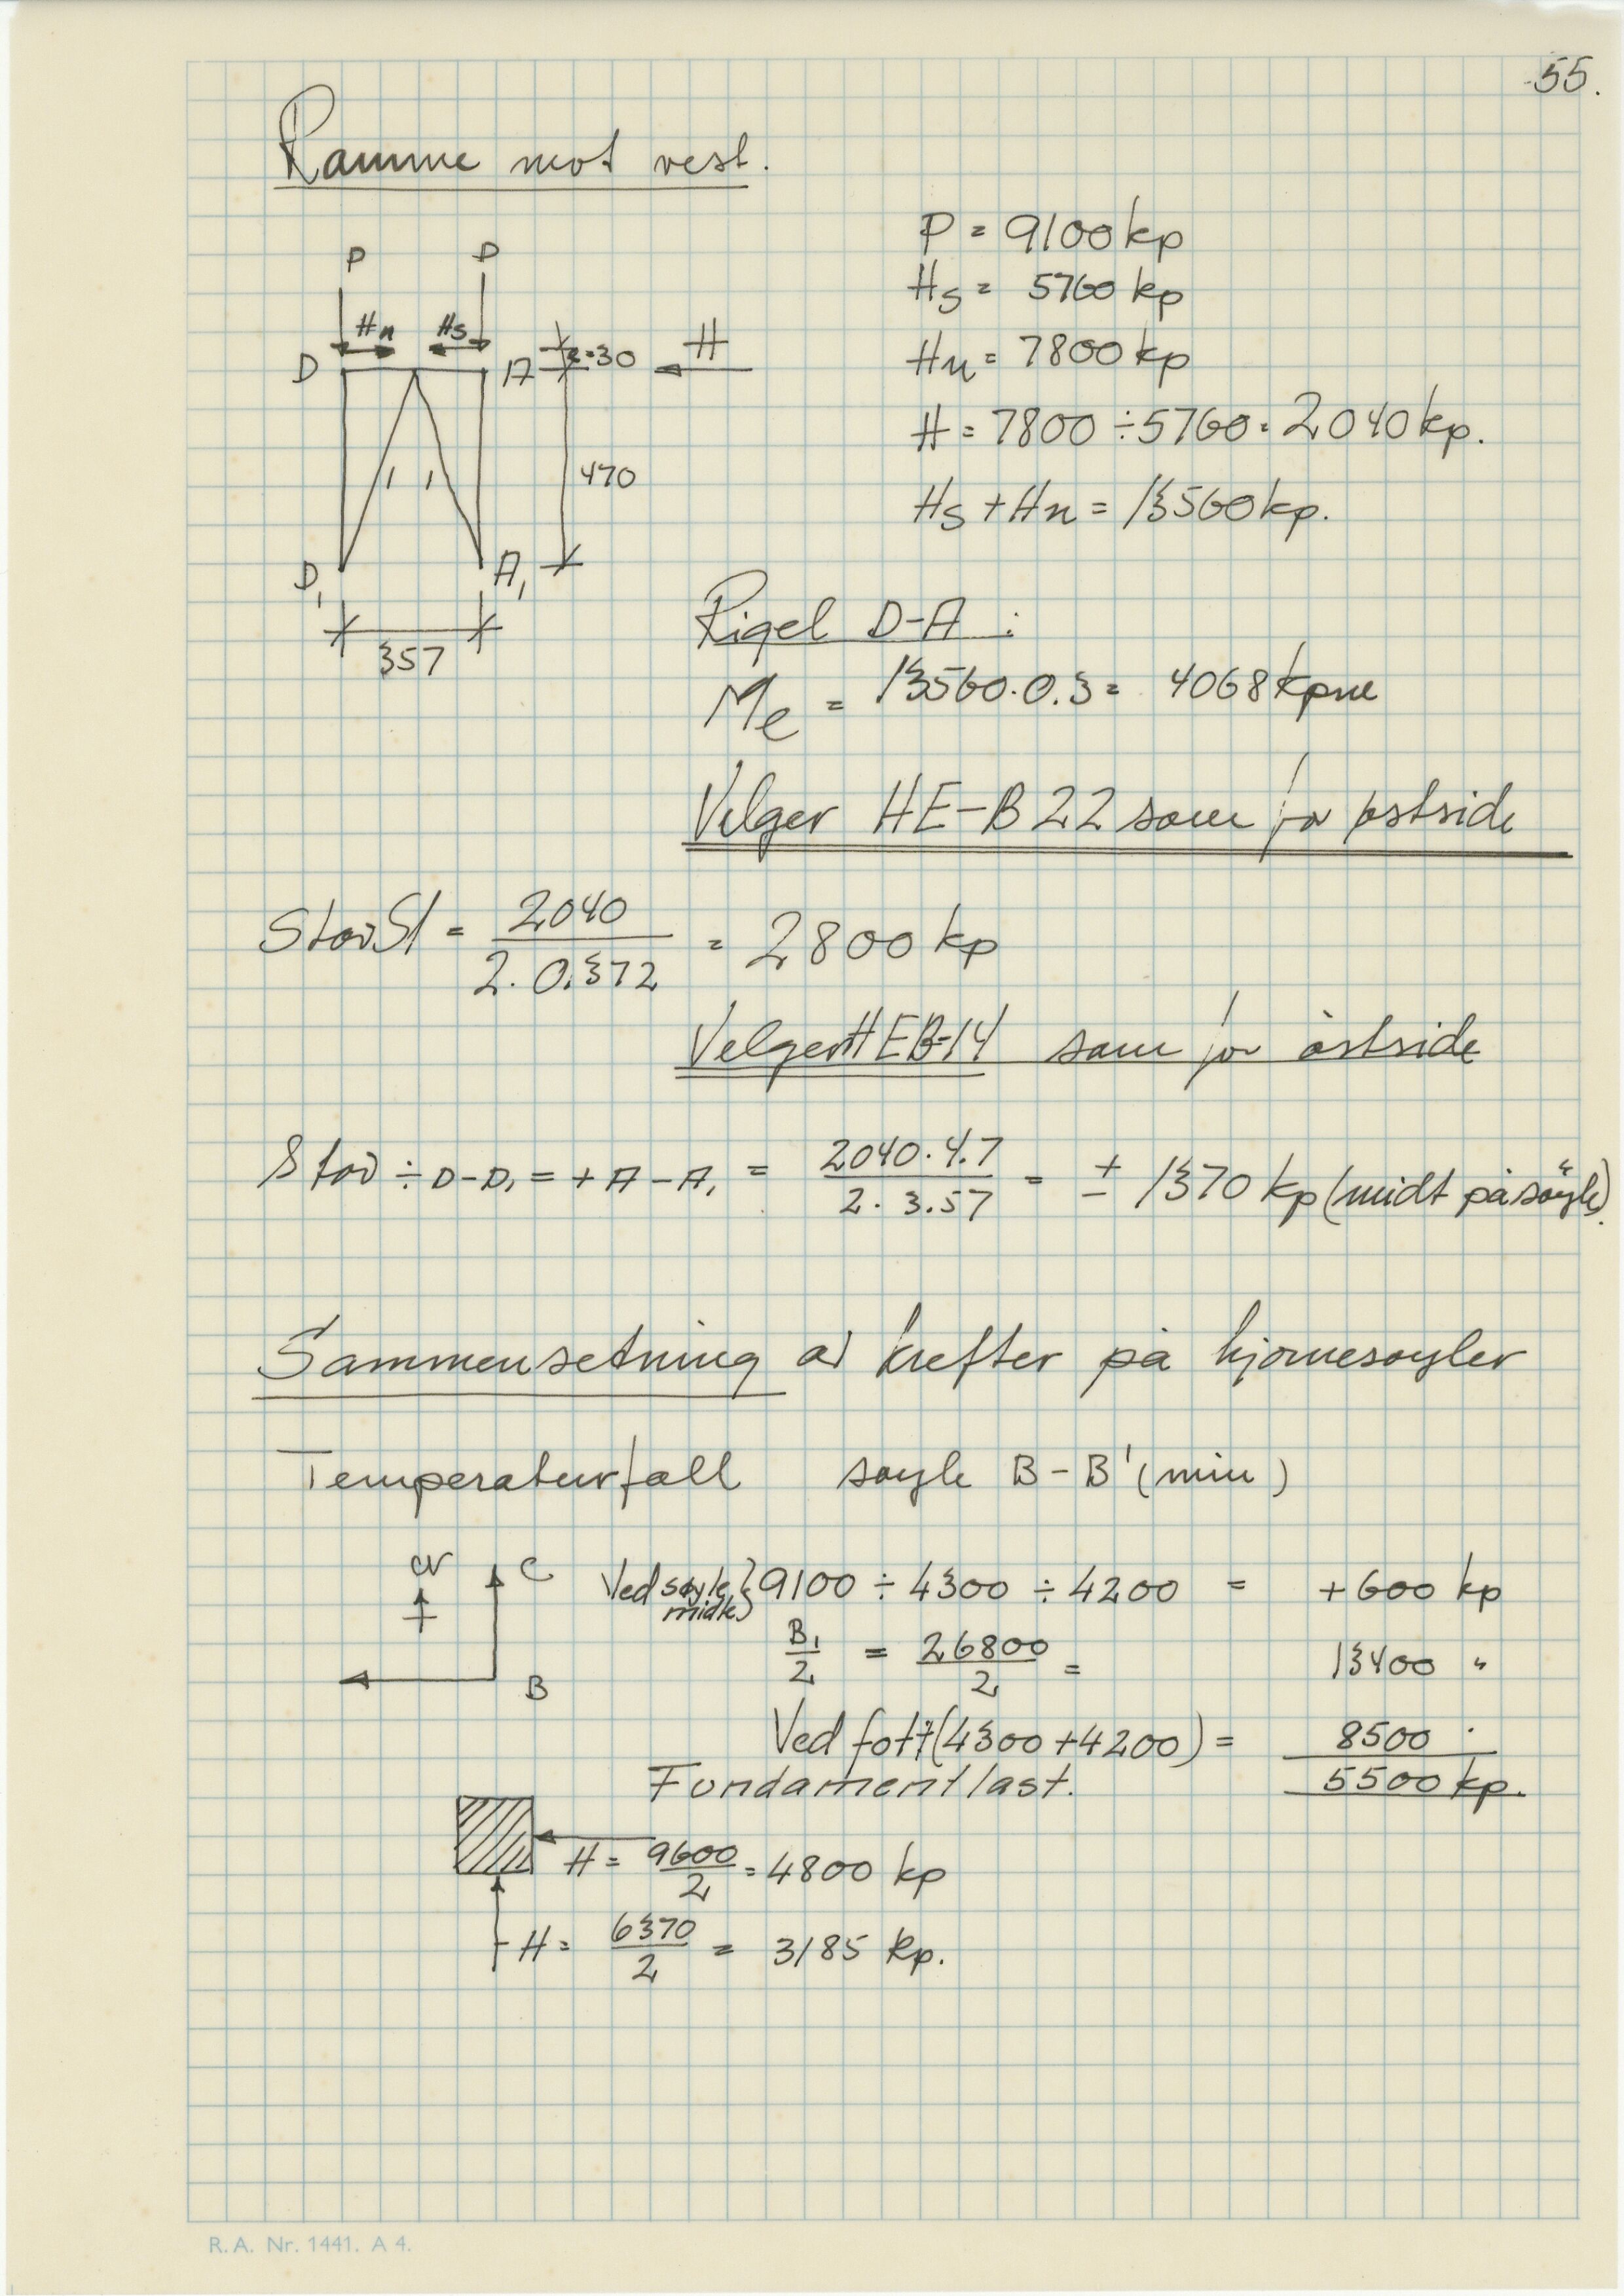 55.
Ramme mot vest.
P = 9100 kp
P P
Hs = 5760 kp
Hn Hs
H
D A z=30
Hn = 7800 kp
H = 7800 ÷ 5760 = 2040 kp.
470
Hs + Hn = 13560 kp.
D1 A1
357
Rigel D-A :
Me = 13560 · 0.3 = 4068 kpm
Velger HE-B 22 som for østside
Stav S1 = 2040 / 2 · 0.372 = 2800 kp
Velger HEB-14 som for østside
Stav ÷ D-D1 = + A-A1 = 2040 · 4.7 / 2 · 3.57 = ± 1370 kp (midt på søyle).
Sammensetning av krefter på hjørnesøyler
Temperaturfall søyle B-B' (min)
N C
Ved søyle midte } 9100 ÷ 4300 ÷ 4200 = +600 kp
B1/2 = 26800/2 = 13400 "
B
Ved fot ÷(4300 + 4200) = 8500 "
Fundamentlast. 5500 kp.
H = 9600/2 = 4800 kp
H = 6370/2 = 3185 kp.
R.A. Nr. 1441. A 4.